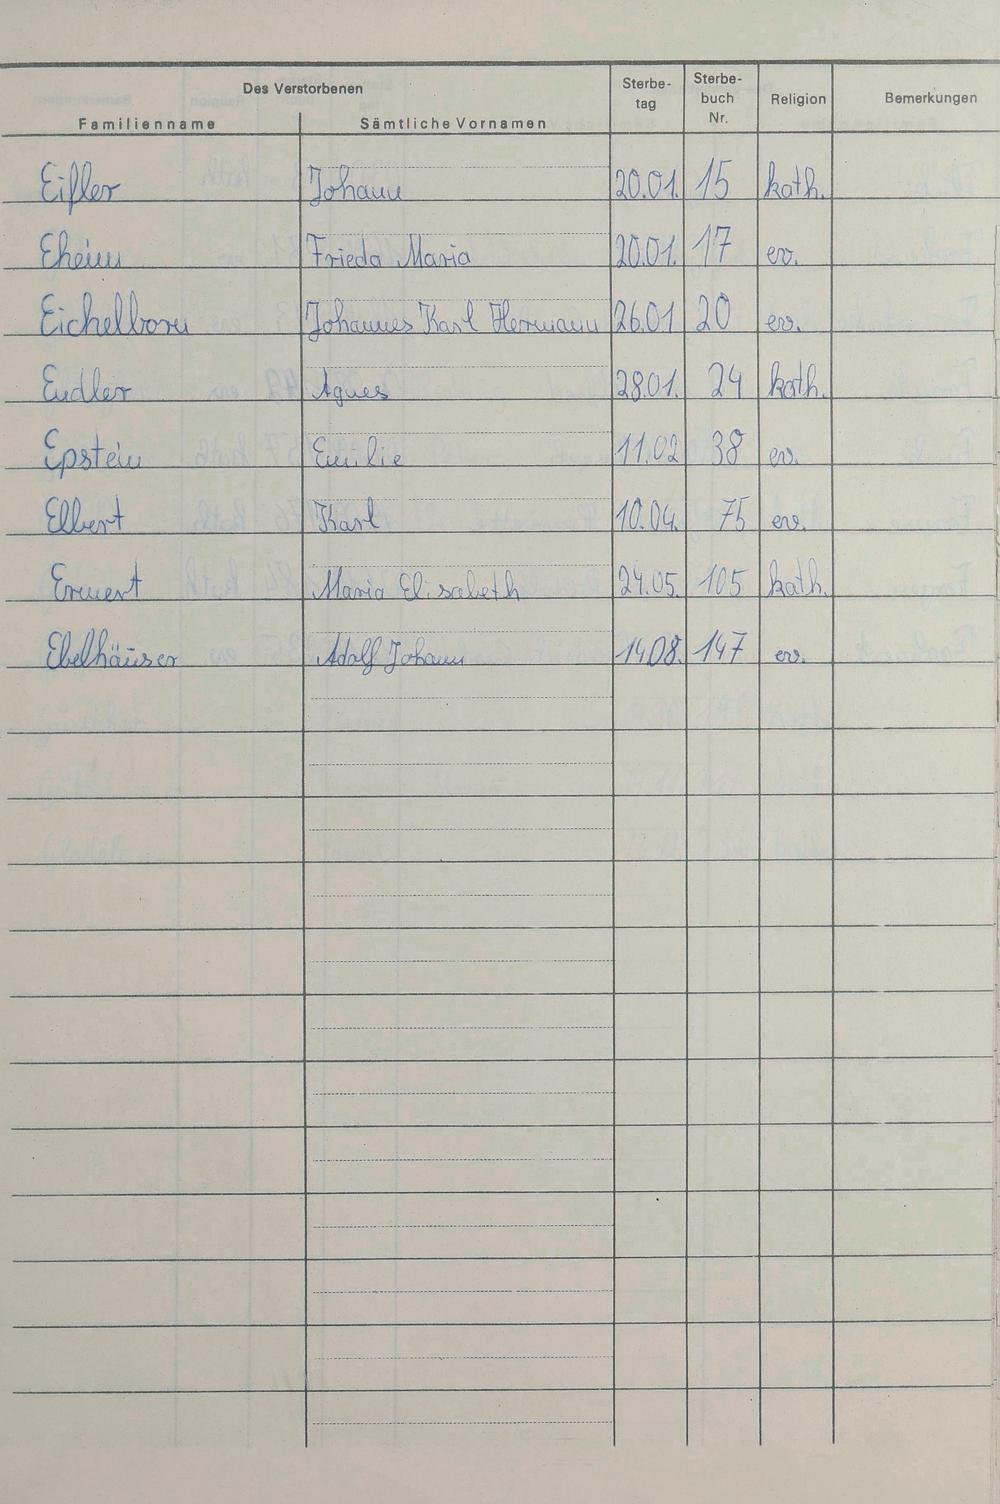 Des Verstorbenen Sterbe-tag Sterbe-buch Nr. Religion Bemerkungen
Familienname Sämtliche Vornamen
Eifler Johann 20.01. 15 kath.
Eheim Frieda Maria 20.01. 17 ev.
Eichelborn Johannes Karl Hermann 26.01 20 ev.
Endler Agnes 28.01. 24 kath.
Epstein Emilie 11.02 38 ev.
Elbert Karl 10.04. 75 ev.
Ermert Maria Elisabeth 24.05. 105 kath.
Ebelhäuser Adolf Johann 14.08. 147 ev.